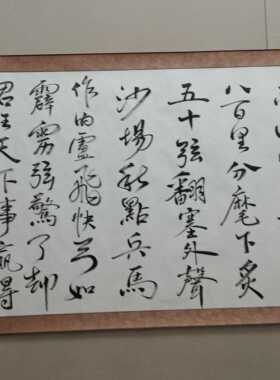 八百里分麾下炙
五十弦翻塞外聲
沙場秋點兵馬
作的盧飛快弓如
霹雳弦驚了却
君王天下事贏得